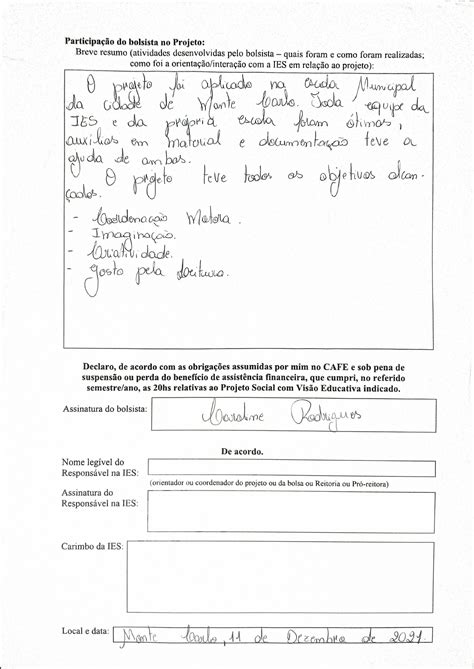 Participação do bolsista no Projeto:
Breve resumo (atividades desenvolvidas pelo bolsista – quais foram e como foram realizadas;
como foi a orientação/interação com a IES em relação ao projeto):
O projeto foi aplicado na escola Municipal
da cidade de Monte Carlo. Toda equipe da
IES e da própria escola foram ótimas,
auxílios em material e documentação teve a
ajuda de ambas.
O projeto teve todos os objetivos alcan-
çados.
- Coordenação Motora.
- Imaginação.
- Criatividade.
- Gosto pela leitura.
Declaro, de acordo com as obrigações assumidas por mim no CAFE e sob pena de
suspensão ou perda do benefício de assistência financeira, que cumpri, no referido
semestre/ano, as 20hs relativas ao Projeto Social com Visão Educativa indicado.
Assinatura do bolsista: Caroline Rodrigues
De acordo.
Nome legível do
Responsável na IES:
(orientador ou coordenador do projeto ou da bolsa ou Reitoria ou Pró-reitora)
Assinatura do
Responsável na IES:
Carimbo da IES:
Local e data: Monte Carlo, 11 de Dezembro de 2021